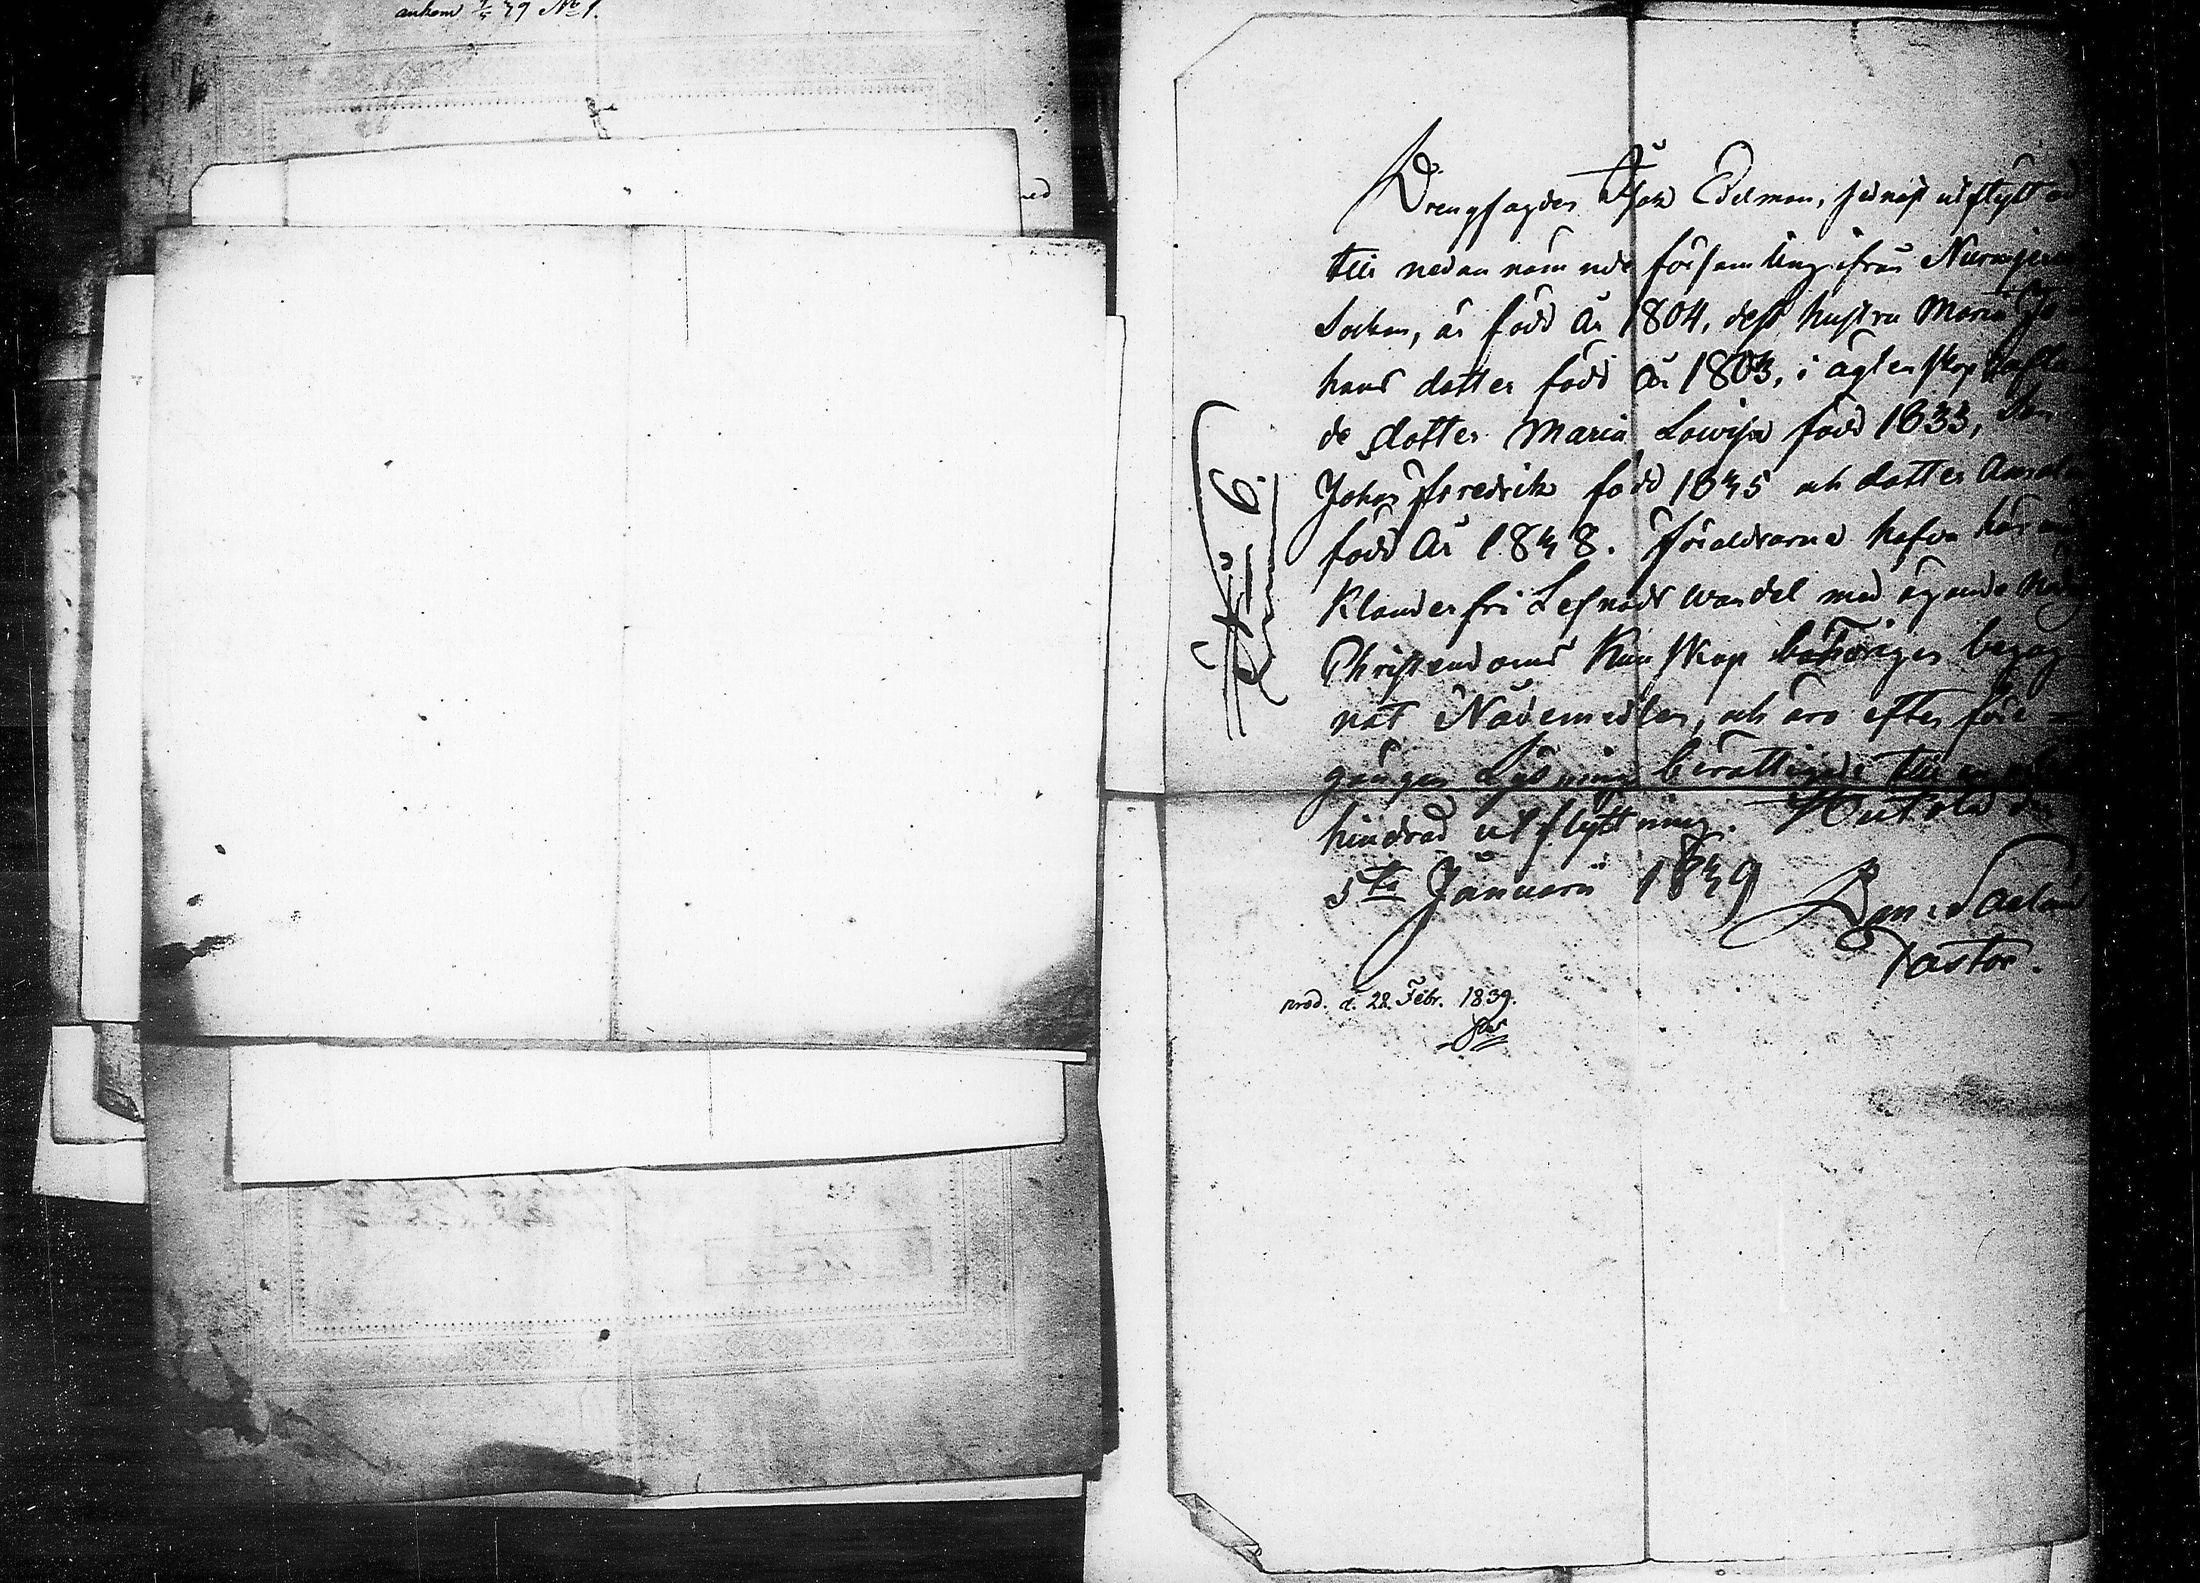 ankom 39 No 1.
Drengsagden Isak Edelman, sednast utflyttad
till nedan nämnde församling ifrån Nurmijervi
Socken, är född År 1804, dess hustru Maria Jo
hans dotter född År 1803, i ägtenskap aflan
de dotter Maria Lowisa född 1833, Son
Johan Fredrik född 1835 och dotter Amalia
född År 1838. Föräldrarna hafva här
Klanderfri Lefnads wandel med ägande
Christendoms Kunskap behörigen begag
nat Nådemedlen, och äro efter före
gången Lysning berättigade till
hindrad utflyttning. Huitola d.
5te Januarii 1839
Pastor.
No 6.
prod. d. 28 Febr. 1839.